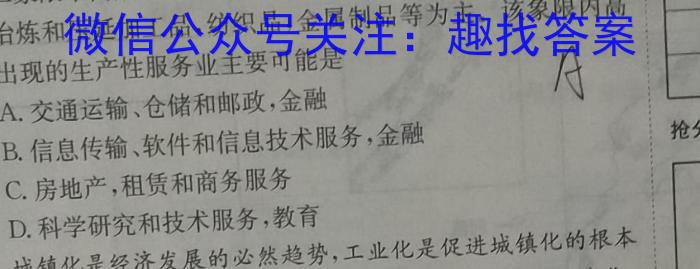 冶炼和压延加工品、纺织品、金属制品等为主。该象限内高
微信公众号关注：趣找答案
出现的生产性服务业主要可能是
A
A. 交通运输、仓储和邮政，金融
B. 信息传输、软件和信息技术服务，金融
C. 房地产，租赁和商务服务
D. 科学研究和技术服务，教育
抢分
城镇化是经济发展的必然趋势，工业化是促进城镇化的根本